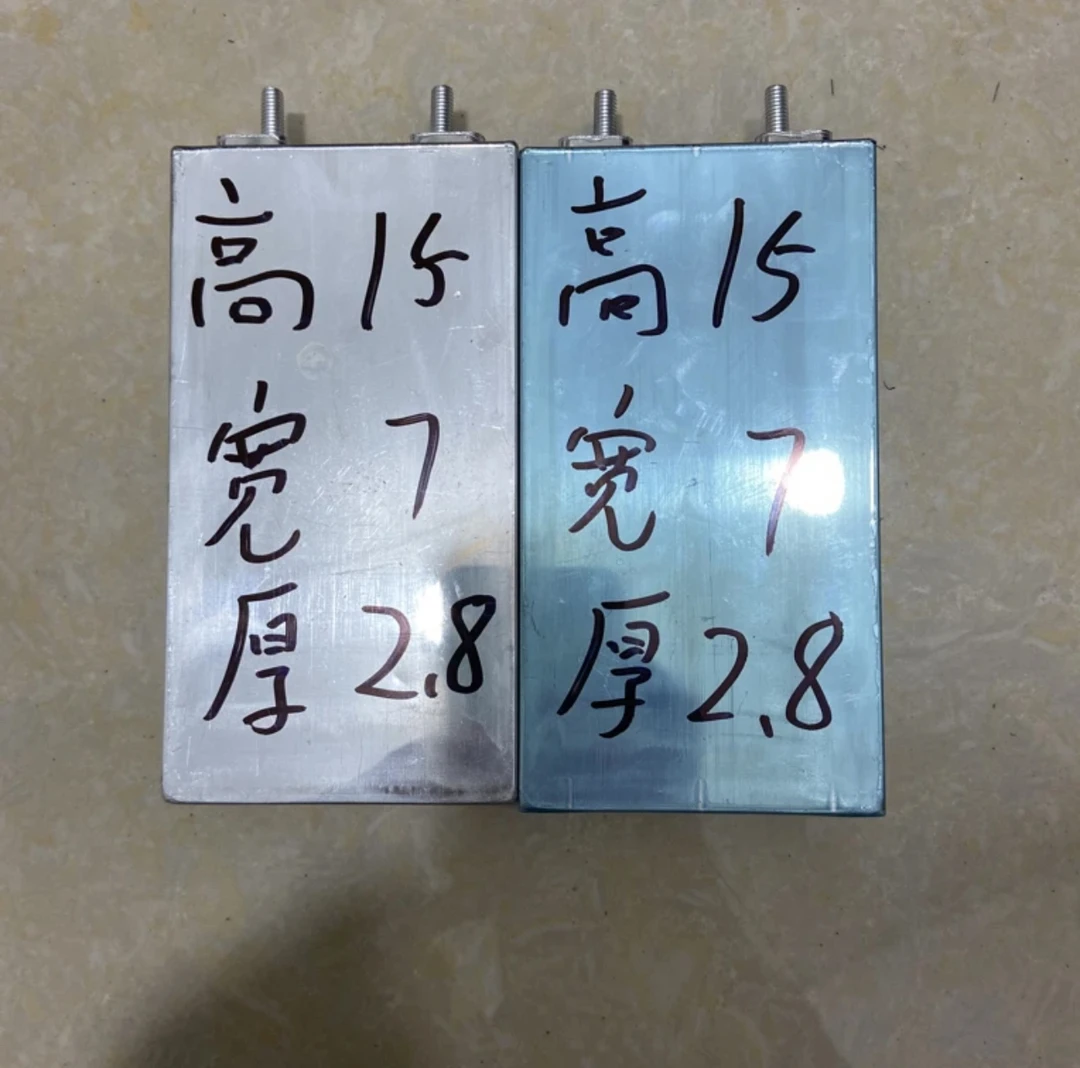 高 15
宽 7
厚 2.8
高 15
宽 7
厚 2.8